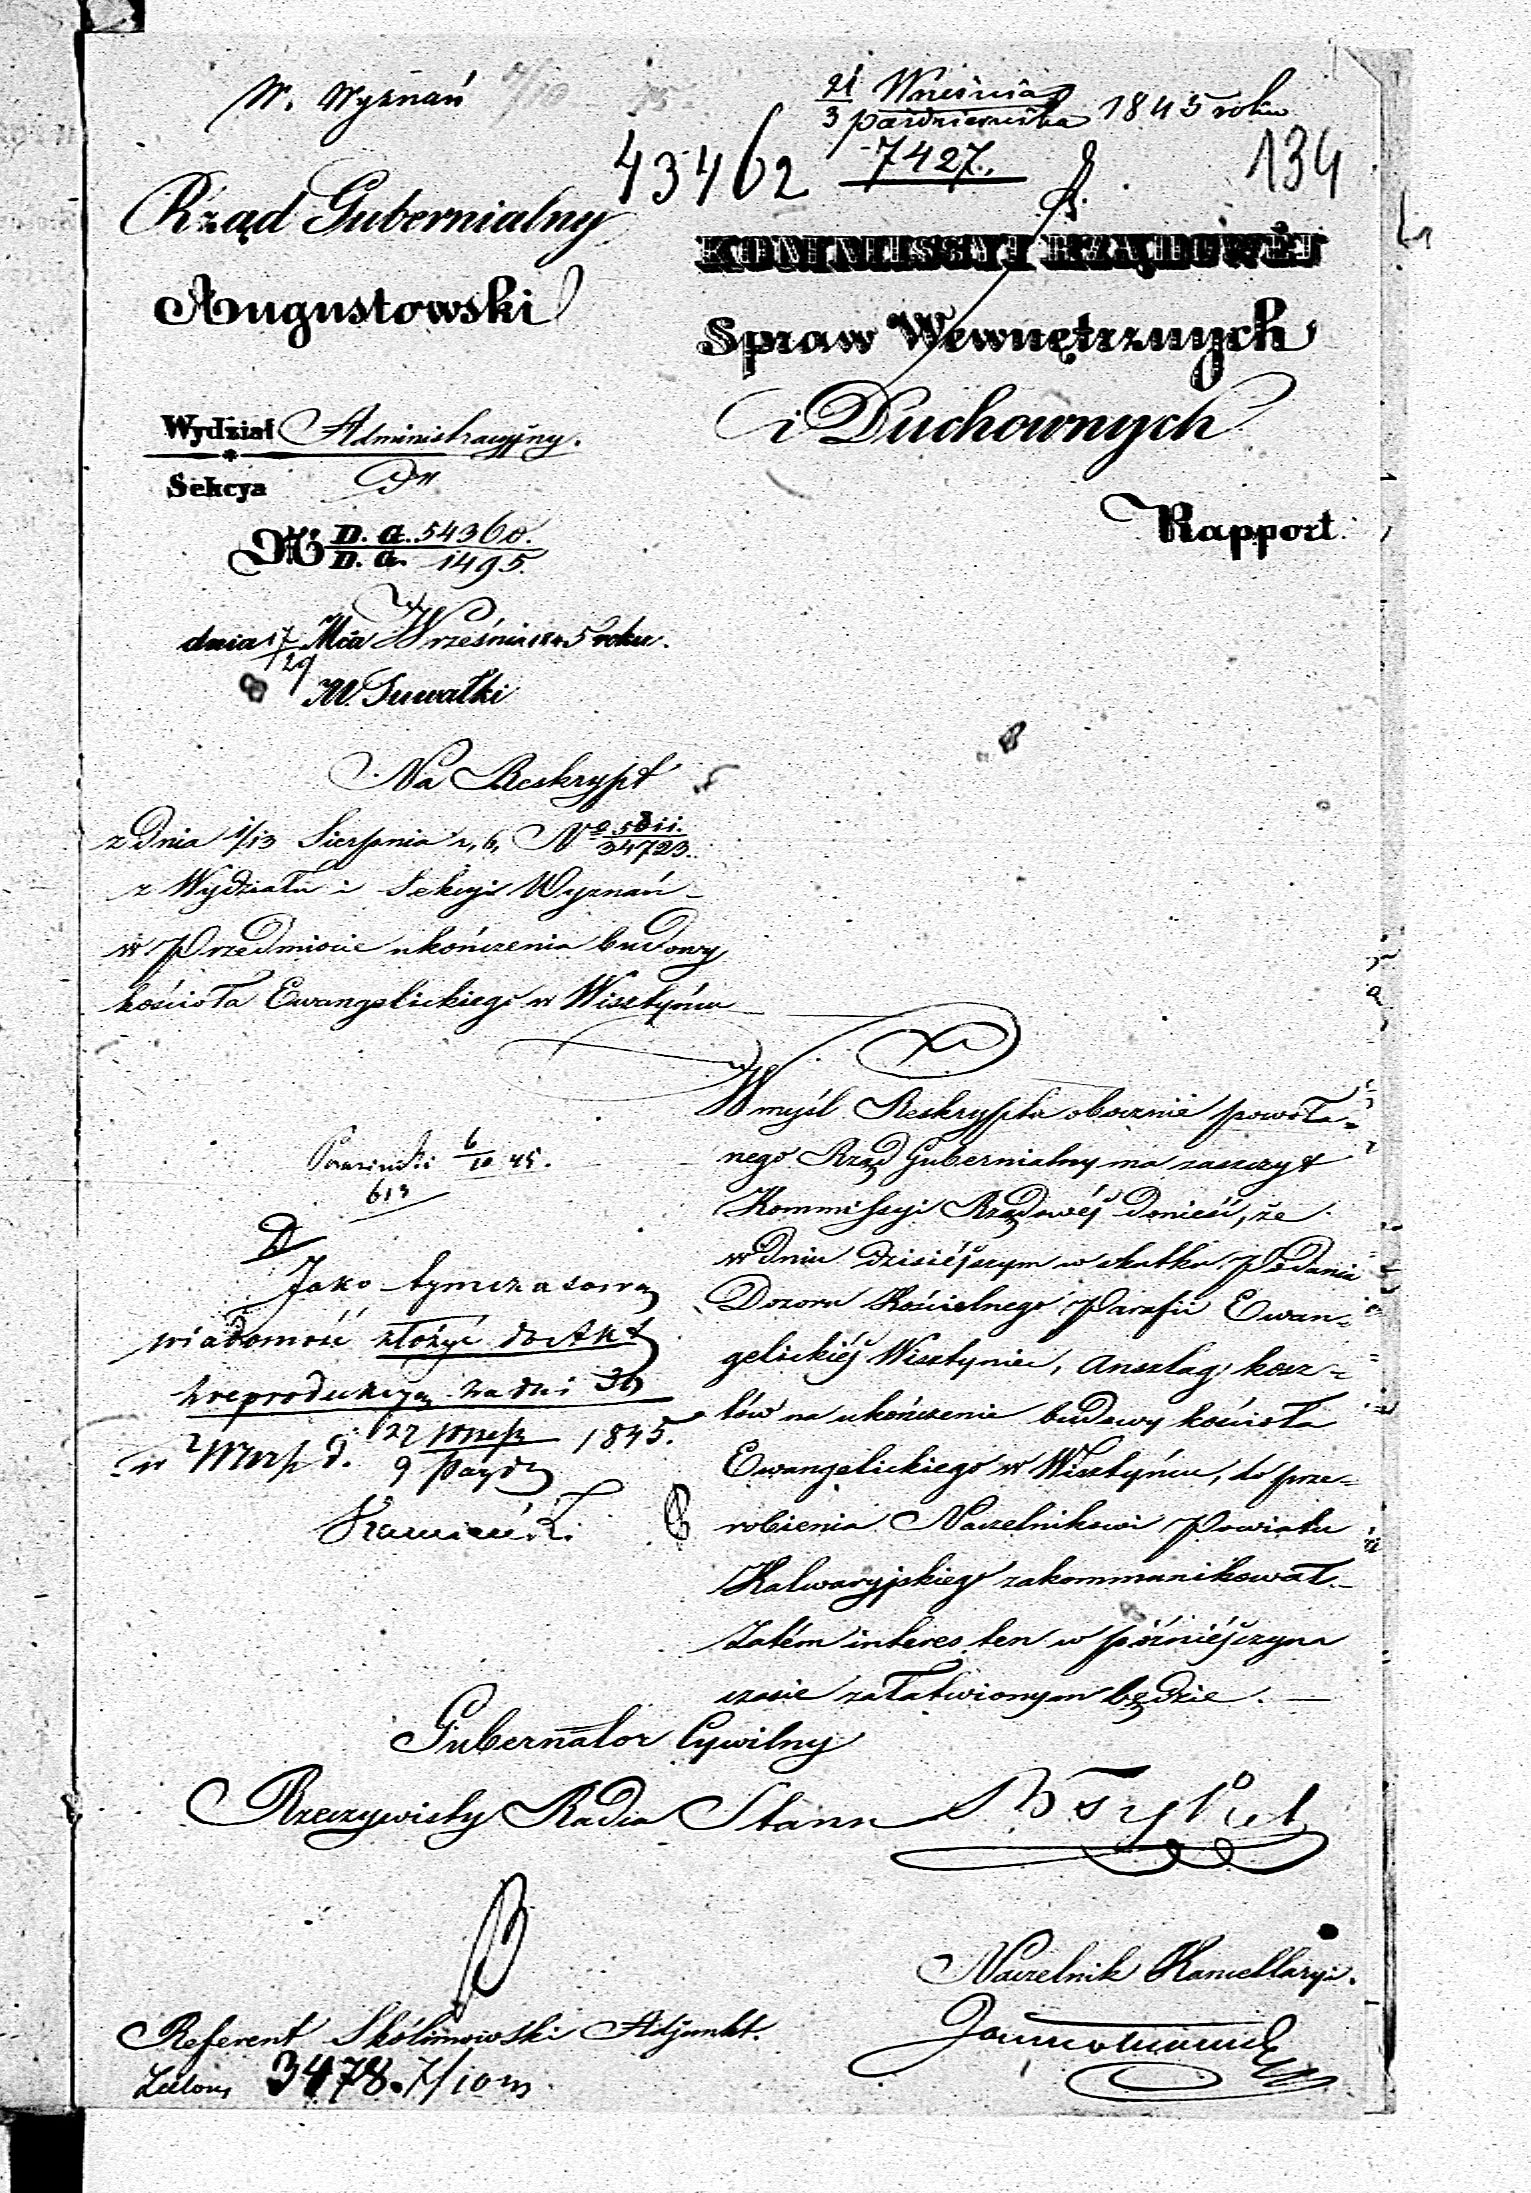 W. Wyznań
21 Września
3 października 1845 roku
43462
7427.
134
Rząd Gubernialny
Augustowski
KOMMISSYI RZĄDOWÉJ
Spraw Wewnętrznych
i Duchownych
Rapport.
Wydział Administracyjny.
Sekcya
№ D. G. 54360.
D. G. 1495.
dnia 17/29 Mca Września 1845 roku.
M. Suwałki
Na Reskrypt
z dnia 1/13 Sierpnia r. b. No 5811.
34723.
z Wydziału i Sekcyi Wyznań
w Przedmiocie ukończenia budowy
kościoła Ewangelickiego w Wisztyńcu
W myśl Reskryptu obocznie powoła-
nego Rząd Gubernialny ma zaszczyt
Kommissyi Rządowéj donieść, że
w dniu dzisiéjszym w skutku Podania
Dozoru Kościelnego Parafii Ewan-
gelickiéj Wisztyniec, Anszlag kosz-
tów na ukończenie budowy kościoła
Ewangelickiego w Wisztyńcu, do prze-
robienia Naczelnikowi Powiatu
Kalwaryjskiego zakommunikował.
Zatém interes ten w późniéjszym
czasie załatwionym będzie.
6/10 45.
613
D
Jako tymczasową
wiadomość złożyć do Akt
z reprodukcyą za dni 30
w Warsz. d. 27 Wrześ 1845.
9 Paźdz
Gubernator Cywilny
Rzeczywisty Radca Stanu
Naczelnik Kancellaryi.
Referent Skolimowski Adjunkt.
3478. 7/10